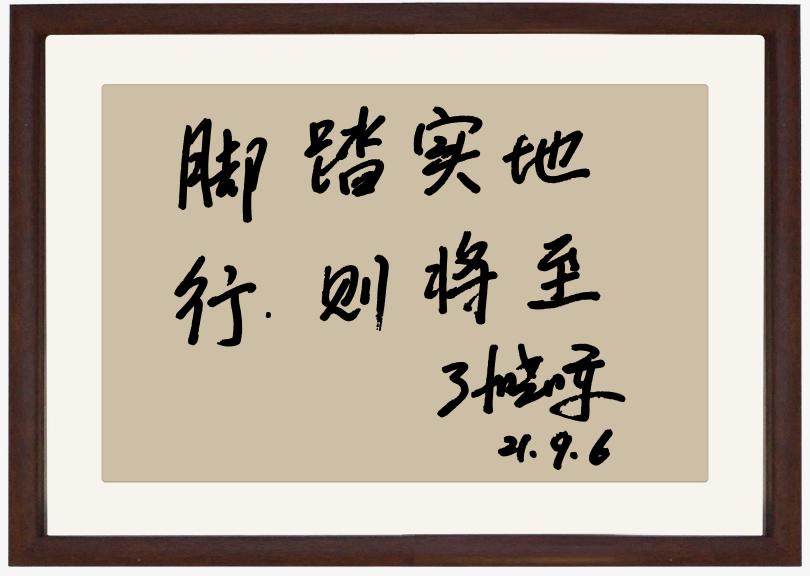 脚踏实地
行.则将至
21.9.6